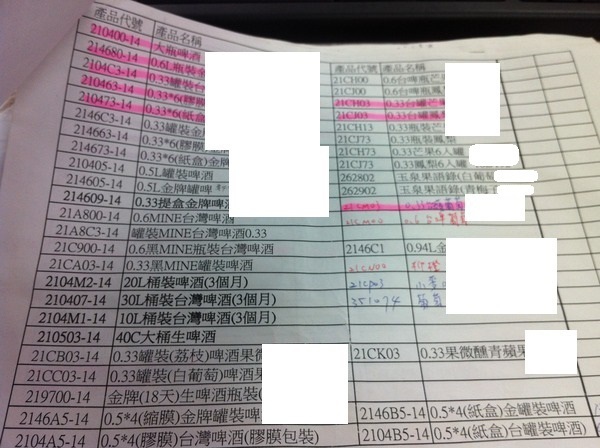 產品代號 產品名稱
210400-14 大瓶啤酒
214680-14 0.6L瓶裝金
2104C3-14 0.33罐裝
210463-14 0.33*6(膠膜
210473-14 0.33*6(紙盒
2146C3-14 0.33罐裝金牌
214663-14 0.33*6(膠膜)
214673-14 0.33*6(紙盒)金牌
210405-14 0.5L罐裝啤酒
214605-14 0.5L金牌罐啤
214609-14 0.33提盒金牌啤酒
21A800-14 0.6MINE台灣啤酒
21A8C3-14 罐裝MINE台灣啤酒0.33
21C900-14 0.6黑MINE瓶裝台灣啤酒
21CA03-14 0.33黑MINE罐裝啤酒
2104M2-14 20L桶裝台灣啤酒(3個月)
210407-14 30L桶裝台灣啤酒(3個月)
2104M1-14 10L桶裝台灣啤酒(3個月)
210503-14 40C大桶生啤酒
21CB03-14 0.33罐裝(荔枝)啤酒果微
21CC03-14 0.33罐裝(白葡萄)啤酒果
219700-14 金牌(18天)生啤酒瓶裝(
2146A5-14 0.5*4(縮膜)金牌罐裝啤
2104A5-14 0.5*4(膠膜)台灣啤酒(膠膜包裝)
產品代號 產品名稱
21CH00 0.6台啤瓶芒
21CJ00 0.6台啤瓶鳳
21CH03 0.33台罐芒
21CJ03 0.33台罐鳳
21CH13 0.33瓶裝芒
21CJ73 0.33瓶裝鳳梨
21CH73 0.33芒果6入罐
21CJ73 0.33鳳梨6入罐
262802 玉泉果語錄(白葡
262902 玉泉果語錄(青梅
21CM03 0.33
21CM00 0.6台啤葡萄
2146C1 0.94L金
21CN03 柳橙
21CP03 小
351074 葡萄
21CK03 0.33果微醺青蘋
2146B5-14 0.5*4(紙盒)金罐裝啤
2104B5-14 0.5*4(紙盒)台罐裝啤酒